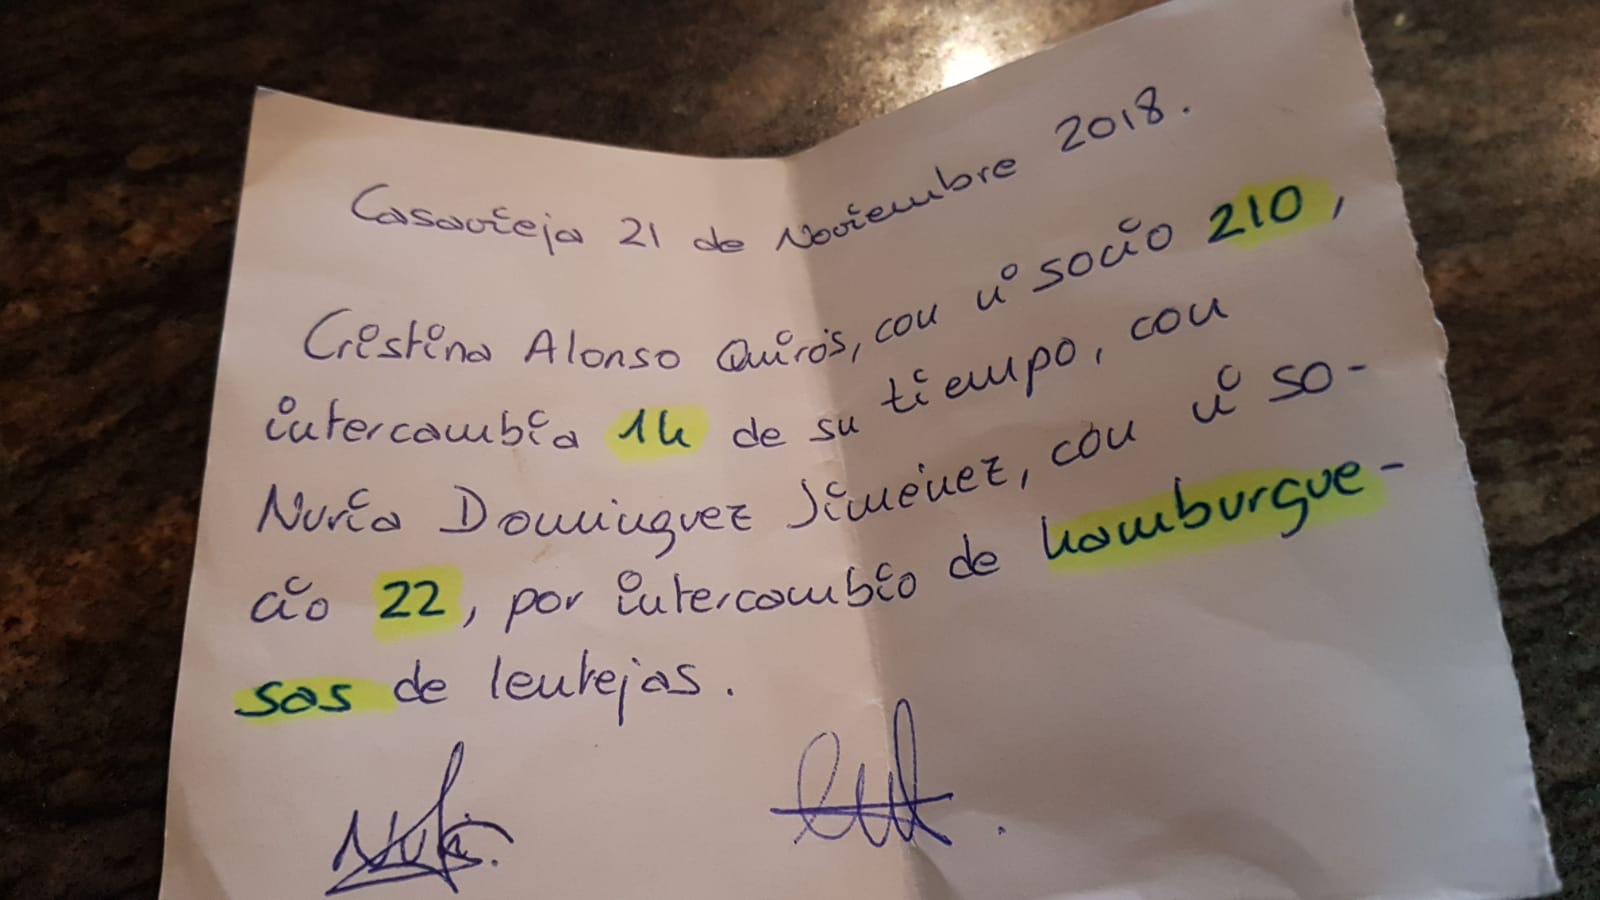 Casavieja 21 de Noviembre 2018.
Cristina Alonso Quirós, con nº socio 210,
intercambia 1h de su tiempo, con
Nuria Dominguez Jiménez, con nº so-
cio 22, por intercambio de hamburgue-
sas de lentejas.